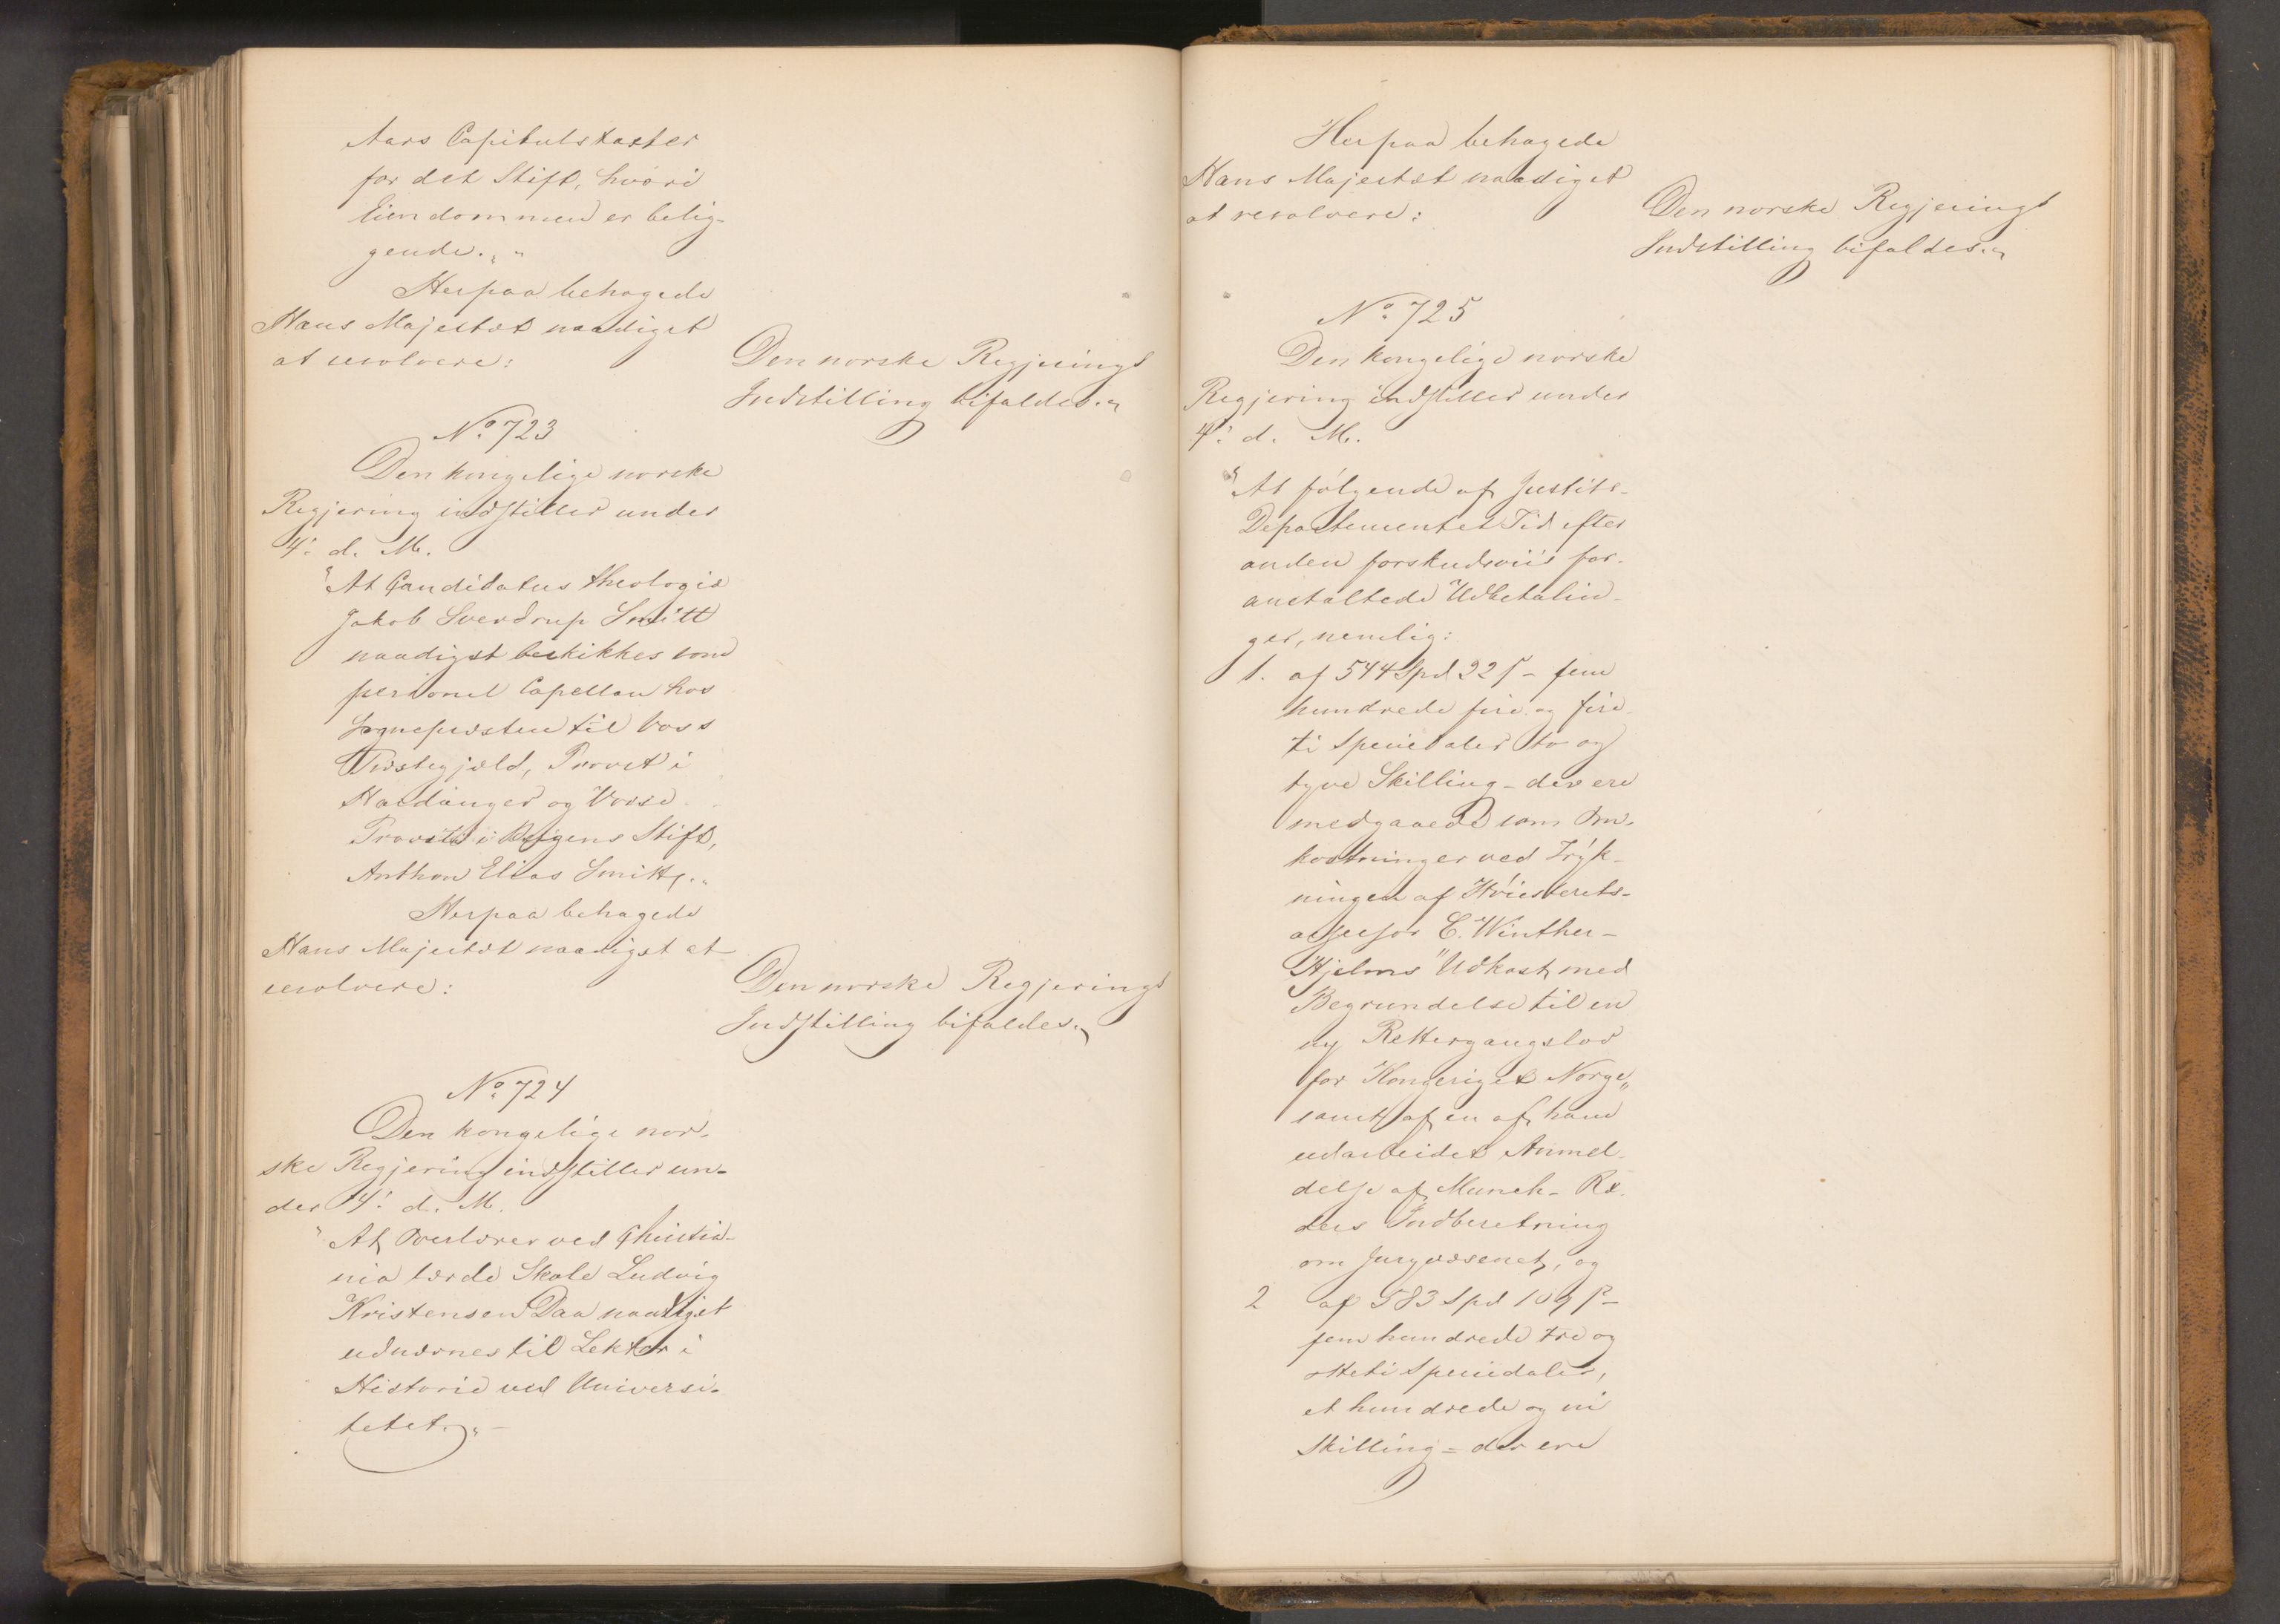 Aars Capitulstaxter
for det Stift, hvori
Eiendommen er belig-
gende."
Herpaa behagede
Hans Majestæt naadigst
at resolvere:
Den norske Regjerings
Indstilling bifaldes."
No. 723
Den kongelige norske
Regjering indstiller under
4. d. M.
"At Candidatus theologiæ
Jakob Sverdrup Smitt
naadigst beskikkes som
personel Capellan hos
Sognepræsten til Voss
Præstegjæld, Provst i
Hardanger og Vosse
Provsti i Bergens Stift,
Anthon Elias Smitt."
Herpaa behagede
Hans Majestæt naadigst at
resolvere:
Den norske Regjerings
Indstilling bifaldes."
No. 724
Den kongelige nor-
ske Regjering indstiller un-
der 4. d. M.
"At Overlærer ved Christia-
nia lærde Skole Ludvig
Kristensen Daa naadigst
udnævnes til Lektor i
Historie ved Universi-
tetet."
Herpaa behagede
Hans Majestæt naadigst
at resolvere:
Den norske Regjerings
Indstilling bifaldes."
No. 725
Den kongelige norske
Regjering indstiller under
4. d. M.
"At følgende af Justits-
Departementet Tid efter
anden forskudsviis for-
anstaltede Udbetalin-
ger, nemlig:
1. af 544 Spd 22 ß - fem
hundrede fire og fire-
ti Speciedaler to og
tyve Skilling - der ere
medgaaede som Om-
kostninger ved Tryk-
ningen af Høiesterets-
assessor C. Winther-
Hjelms "Udkast med
Begrundelse til en
ny Rettergangslov
for Kongeriget Norge"
samt af en af ham
udarbeidet Anmel-
delse af Munch-Ræ-
ders Indberetning
om Juryvæsenet, og
2 af 583 Spd 109 ß -
fem hundrede tre og
otteti Speciedaler,
et hundrede og ni
Skilling - der ere